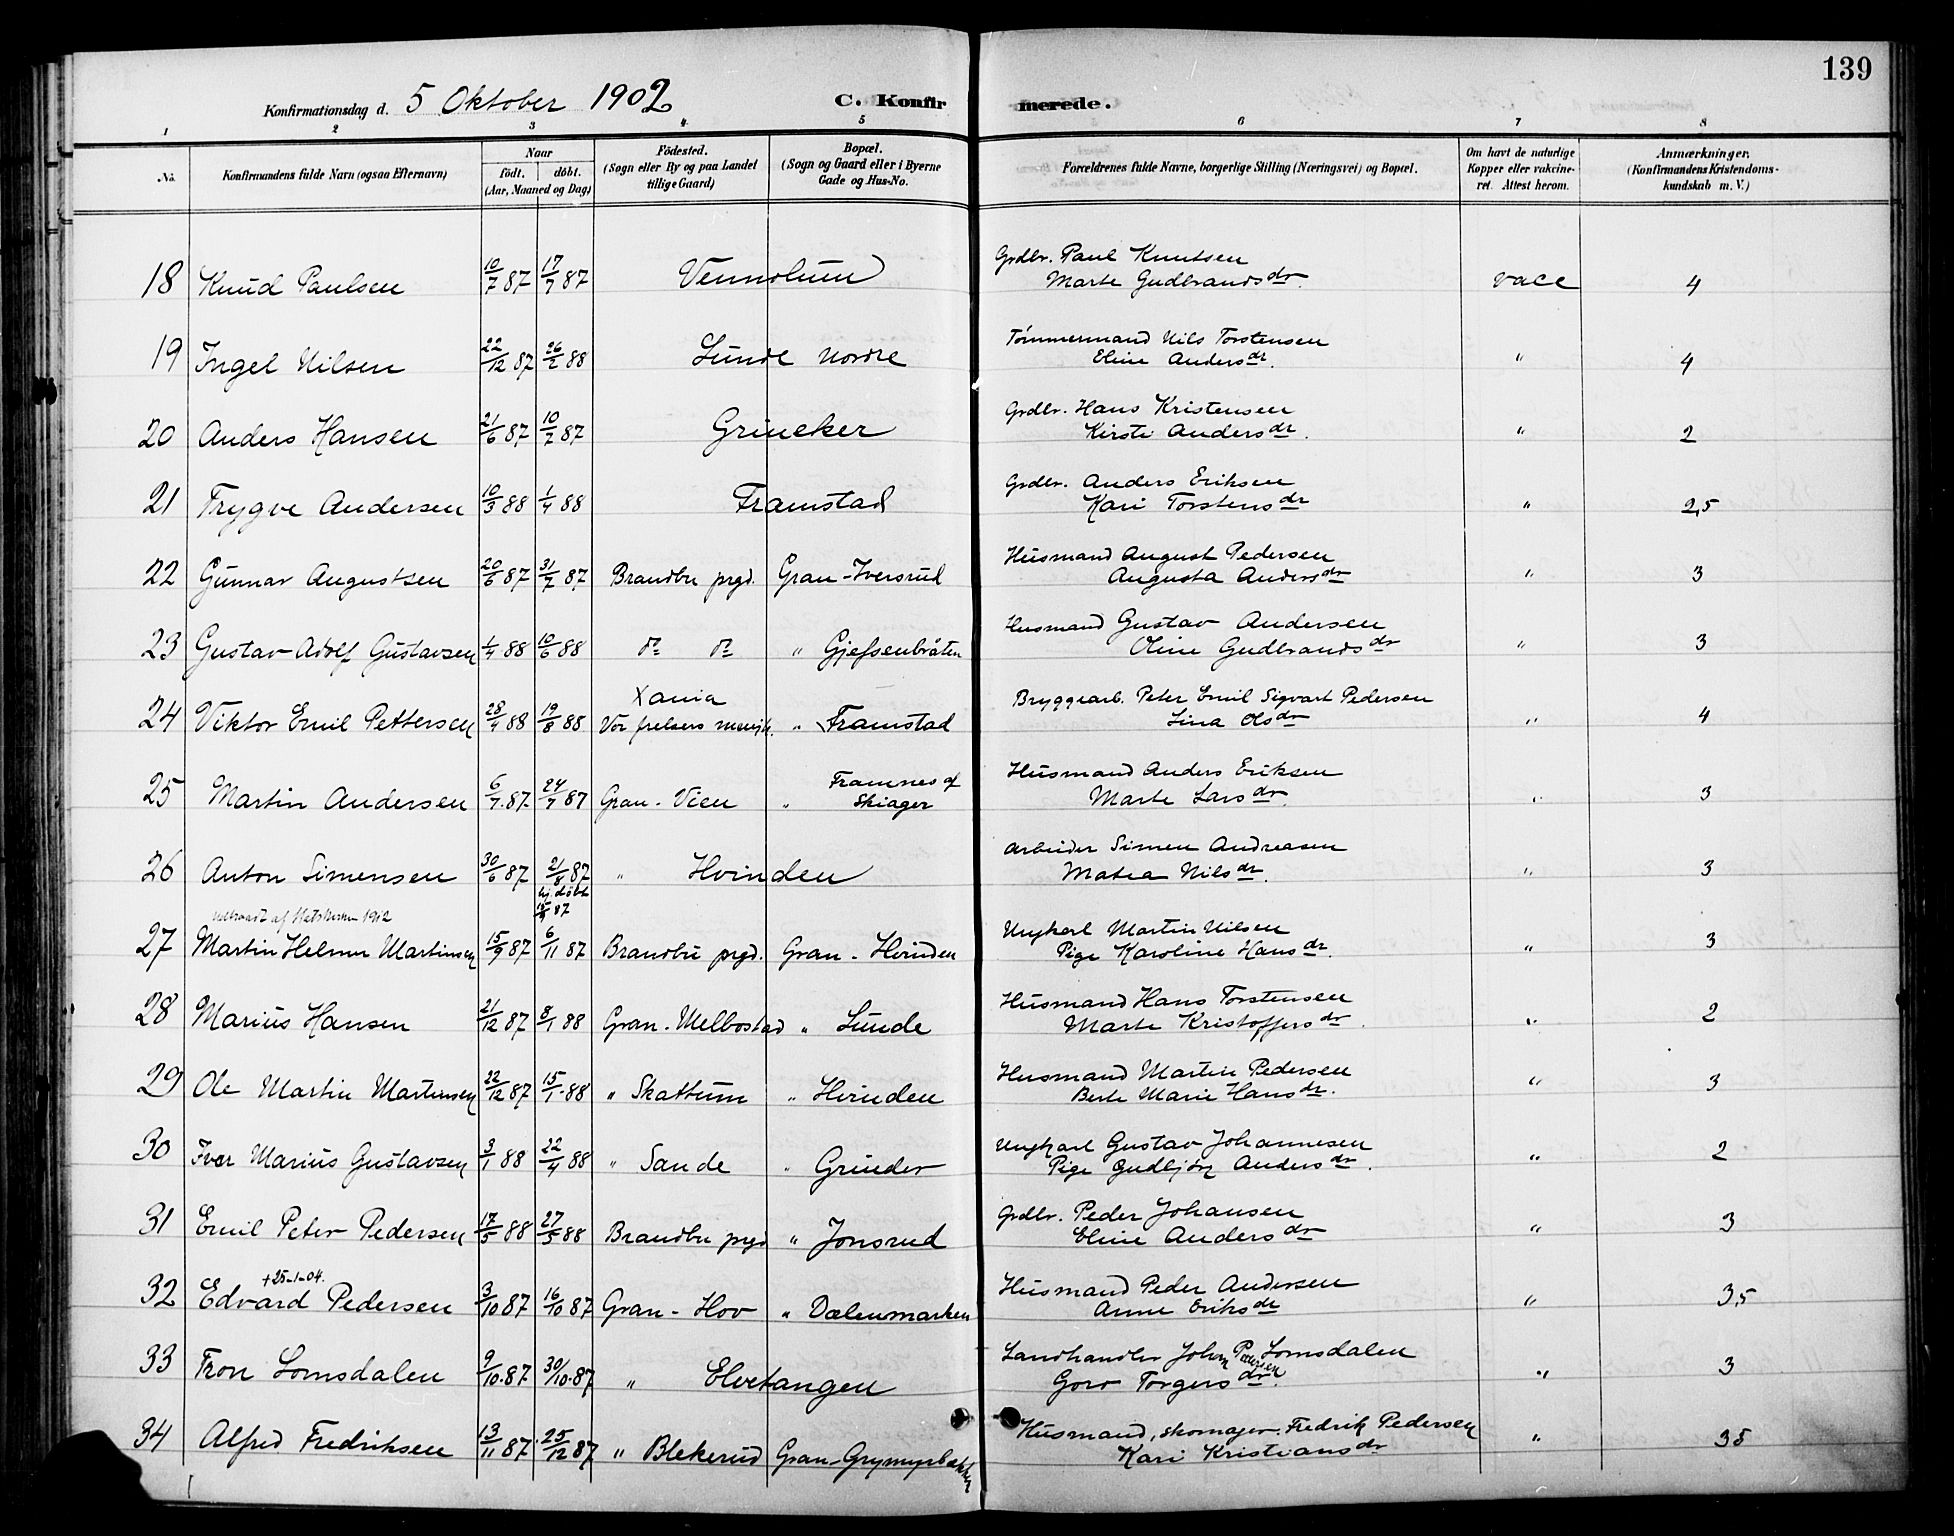 139
Konfirmationsdag d. 5 Oktober 1902 C. Konfirmerede.
1 2 3 4 5 6 7 8
No. Konfirmandens fulde Navn (ogsaa Efternavn) Naar født. døbt. (Aar, Maaned og Dag) Fødested. (Sogn eller By og paa Landet tillige Gaard) Bopæl. (Sogn og Gaard eller i Byerne Gade og Hus-No. Forældrenes fulde Navne, borgerlige Stilling (Næringsvei) og Bopæl. Om havt de naturlige Kopper eller vakcineret. Attest herom. Anmærkninger. (Konfirmandens Kristendomskundskab m. V.)
18 Knud Paulsen 10/7 87 17/7 87 Vennolum Grdbr. Paul Knutsen vacc 4
Marte Gudbrandsdr.
19 Ingel Nilsen 22/12 87 26/2 88 Lunde nordre Tømmermand Nils Torstensen " 4
Eline Andersdr.
20 Anders Hansen 21/6 87 10/7 87 Grineker Grdbr. Hans Kristensen " 2
Kirsti Andersdr.
21 Trygve Andersen 10/3 88 1/4 88 Framstad Grdbr. Anders Eriksen " 2,5
Kari Torstensdr
22 Gunnar Augustsen 20/6 87 31/7 87 Brandbu prgd. Gran - Iversrud Husmand August Pedersen " 3
Augusta Andersdr
23 Gustav Adolf Gustavsen 1/4 88 10/6 88 do do " Gjefsenbråten Husmand Gustav Andersen " 3
Oline Gudbrandsdr
24 Viktor Emil Pettersen 28/4 88 19/8 88 Xania Vor frelsers menigh. " Framstad Bryggearb. Peter Emil Sigvart Pedersen " 4
Lina Olsdr
25 Martin Andersen 6/7 87 24/7 87 Gran - Vien " Framnes af Skiager Husmand Anders Eriksen " 3
Marte Larsdr.
26 Anton Simensen 30/6 87 21/8 87 " Hvinden Arbeider Simen Andreasen " 3
Matea Nilsdr.
hj. døbt
Udtraadt af Statskirken 1912
27 Martin Helmer Martinsen 15/9 87 6/11 87 Brandbu prgd. Gran - Hvinden Ungkarl Martin Nilsen " 3
Pige Karoline Hansdr.
28 Marius Hansen 21/12 87 8/1 88 Gran - Melbostad " Lunde Husmand Hans Torstensen " 2
Marte Kristoffersdr.
29 Ole Martin Martinsen 22/12 87 15/1 88 " Skattum " Hvinden Husmand Martin Pedersen " 3
Berte Marie Hansdr.
30 Iver Marius Gustavsen 3/1 88 22/4 88 " Sande " Grinder Ungkarl Gustav Johannesen " 2
Pige Gudbjør Andersdr.
31 Emil Peter Pedersen 17/5 88 27/5 88 Brandbu prgd " Jonsrud Grdbr. Peder Johansen " 3
Eline Andersdr
+ 25-1-04.
32 Edvard Pedersen 3/10 87 16/10 87 Gran - Hov " Dælenmarken Husmand Peder Andersen " 3,5
Anne Eriksdr
33 Tron Lomsdalen 9/10 87 30/10 87 " Elvetangen Landhandler Johan Pedersen Lomsdalen " 3
Goro Torgersdr.
34 Alfred Fredriksen 13/11 87 25/12 87 " Blekerud Gran - Grymyrbakken Husmand, skomager Fredrik Pedersen " 35
Kari Kristiansdr